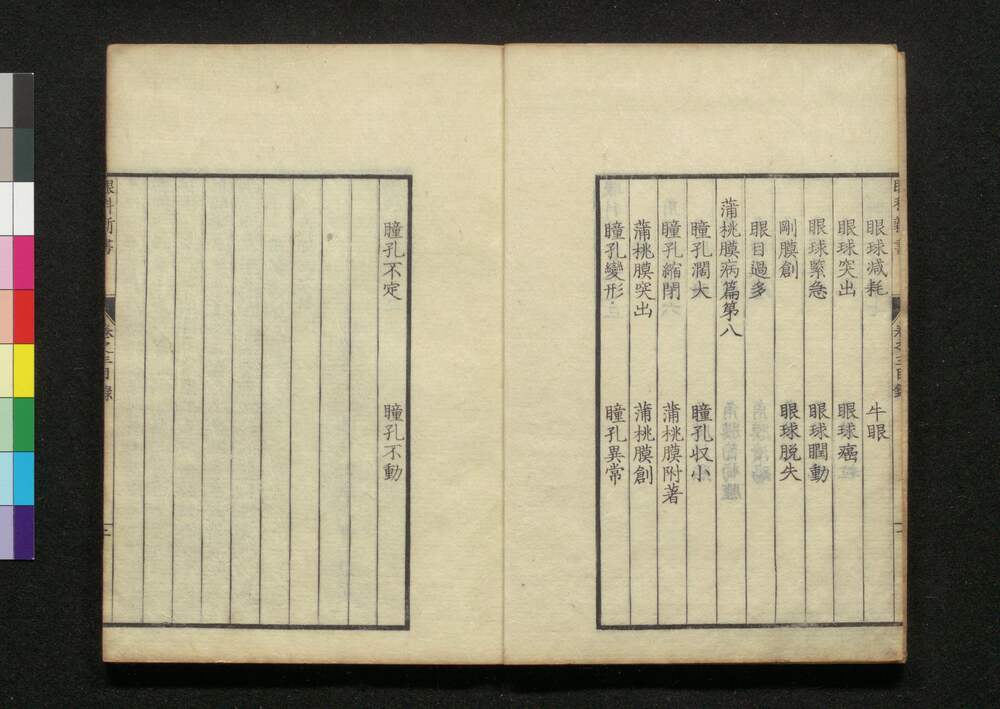 眼球減耗　牛眼
眼球突出　眼球癌
眼球緊急　眼球瞤動
剛膜創　眼球脱失
眼目過多
蒲桃膜病篇第八
瞳孔濶大　瞳孔収小
瞳孔縮閉　蒲桃膜附著
蒲桃膜突出　蒲桃膜創
瞳孔變形　瞳孔異常
瞳孔不定　瞳孔不動
眼科新書　卷之三目録　二